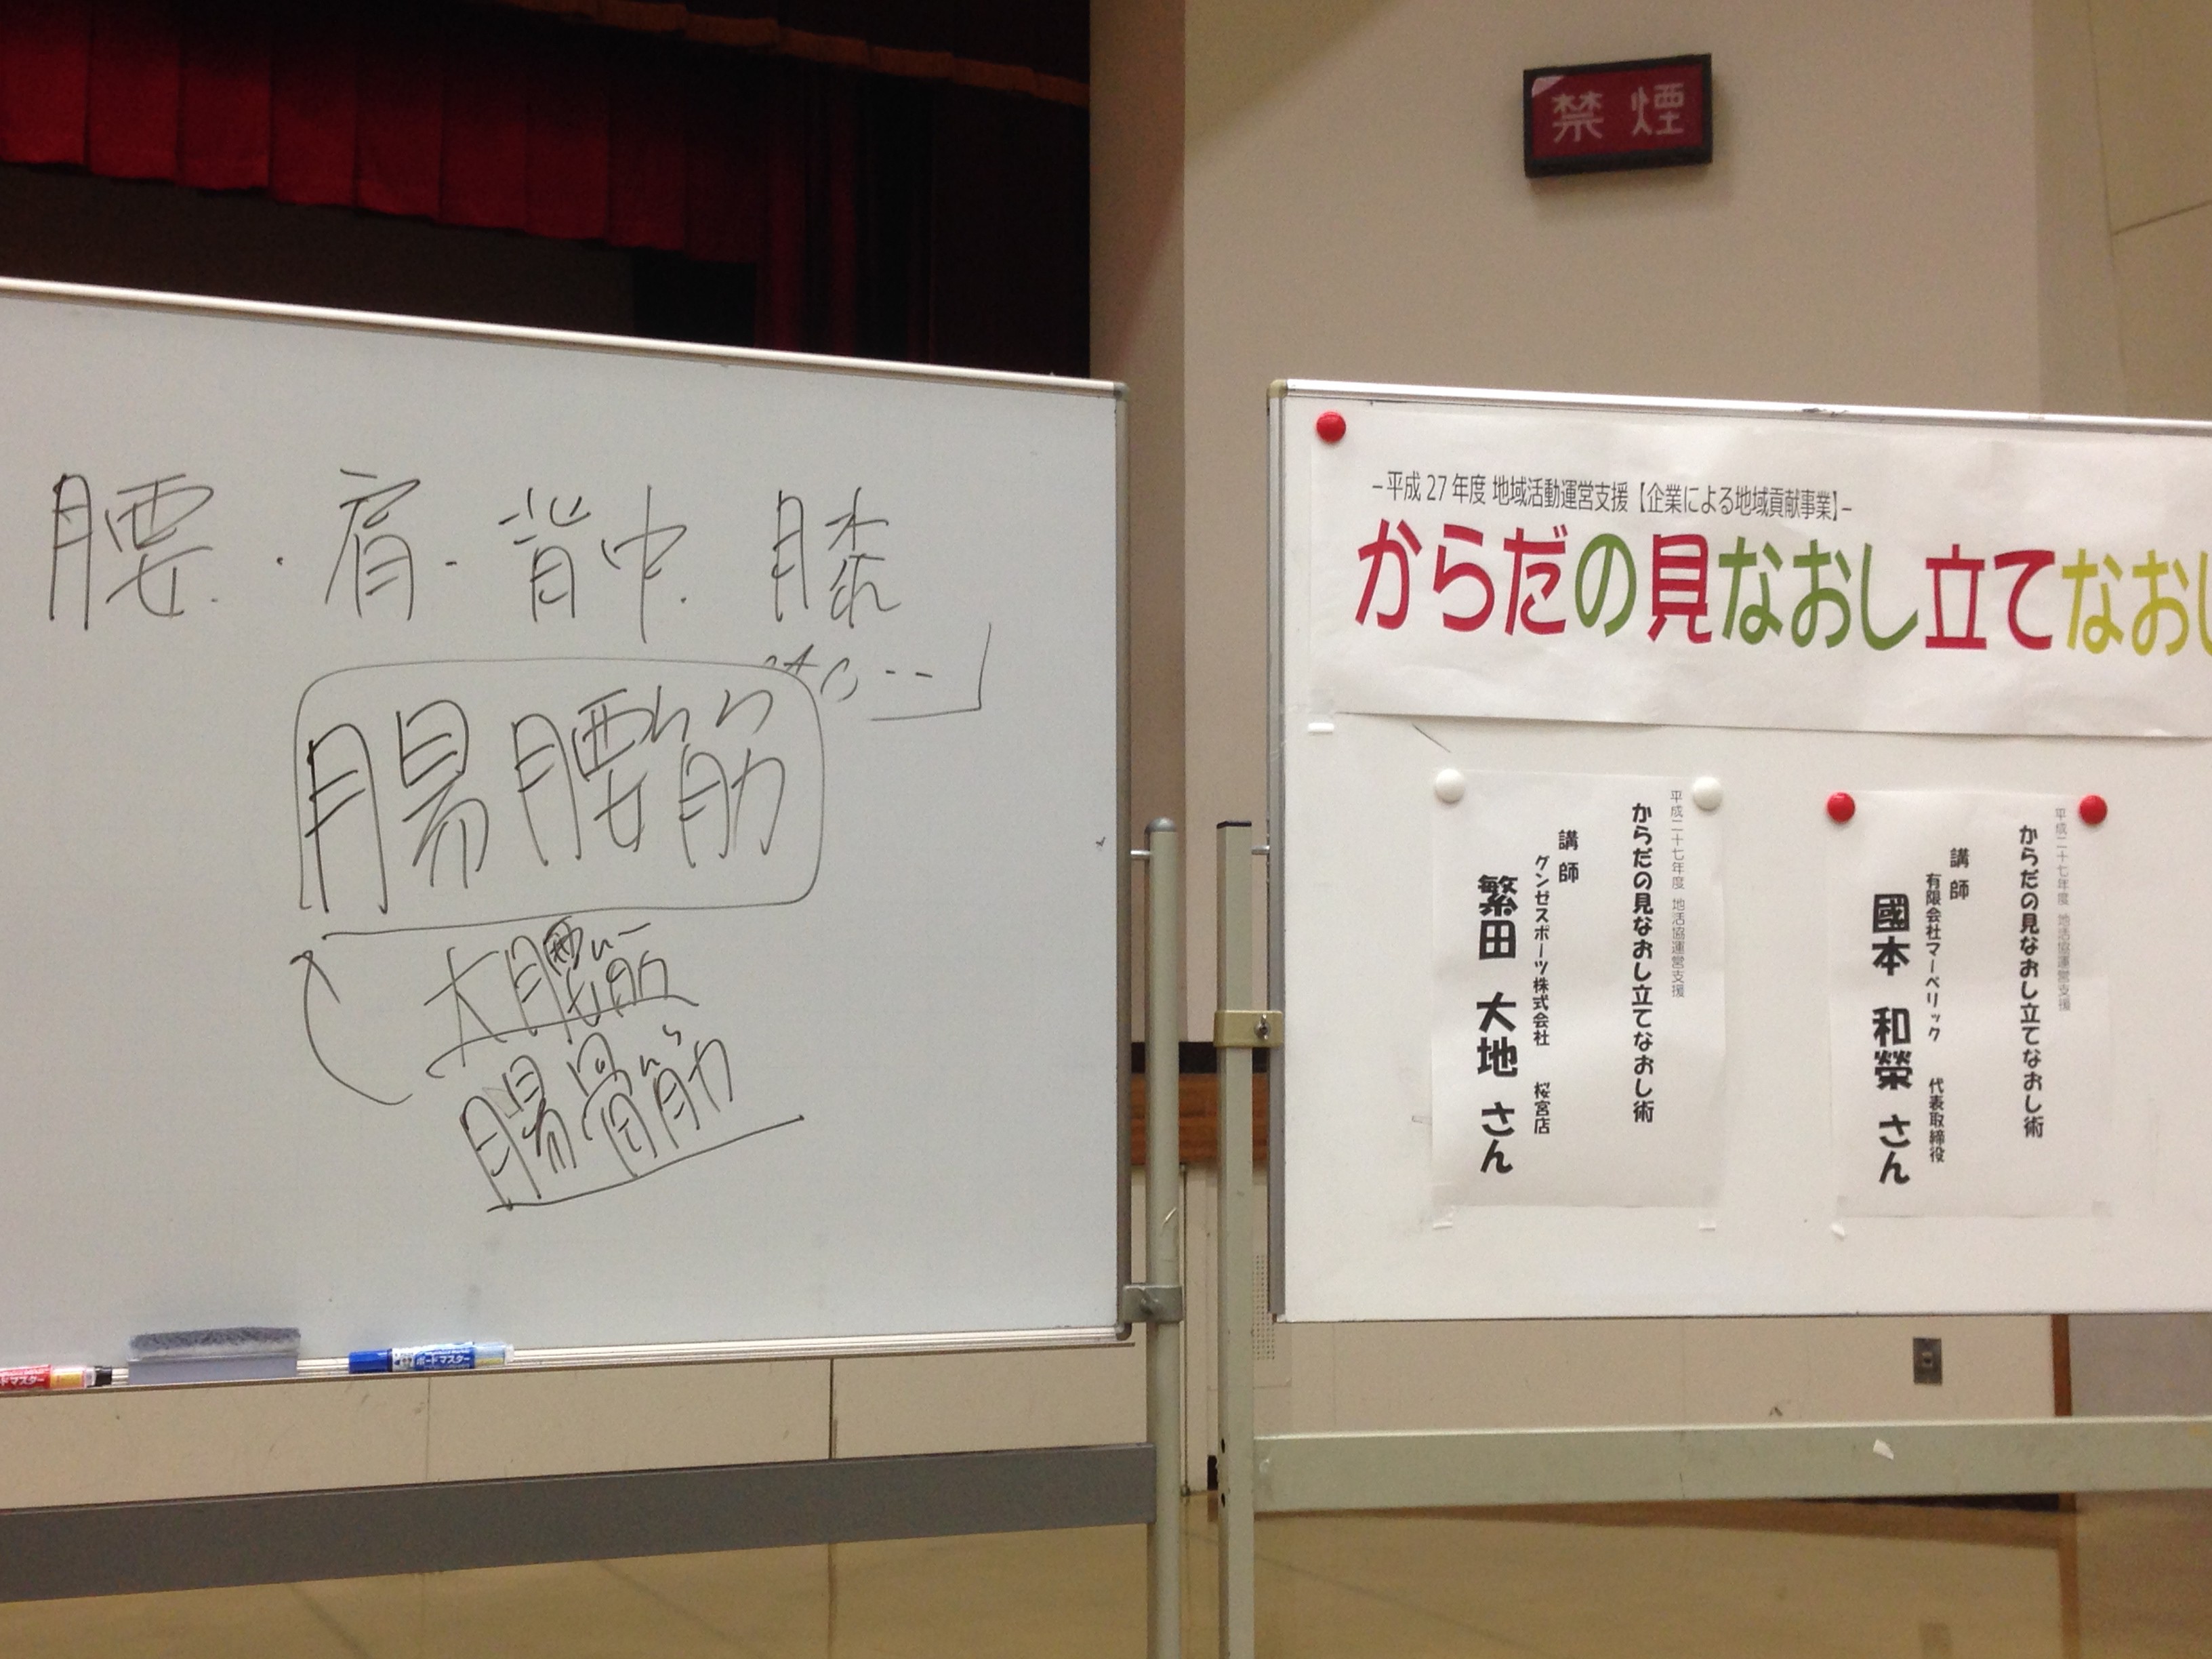 禁煙
腰・肩・背中・膝
腸腰筋
大腰筋
腸骨筋
ボードマスター
ードマスター
−平成27年度 地域活動運営支援【企業による地域貢献事業】−
からだの見なおし立てなおし
平成二十七年度 地活協運営支援
からだの見なおし立てなおし術
講師
グンゼスポーツ株式会社 桜宮店
繁田 大地 さん
平成二十七年度 地活協運営支援
からだの見なおし立てなおし術
講師
有限会社マーベリック 代表取締役
國本 和榮 さん